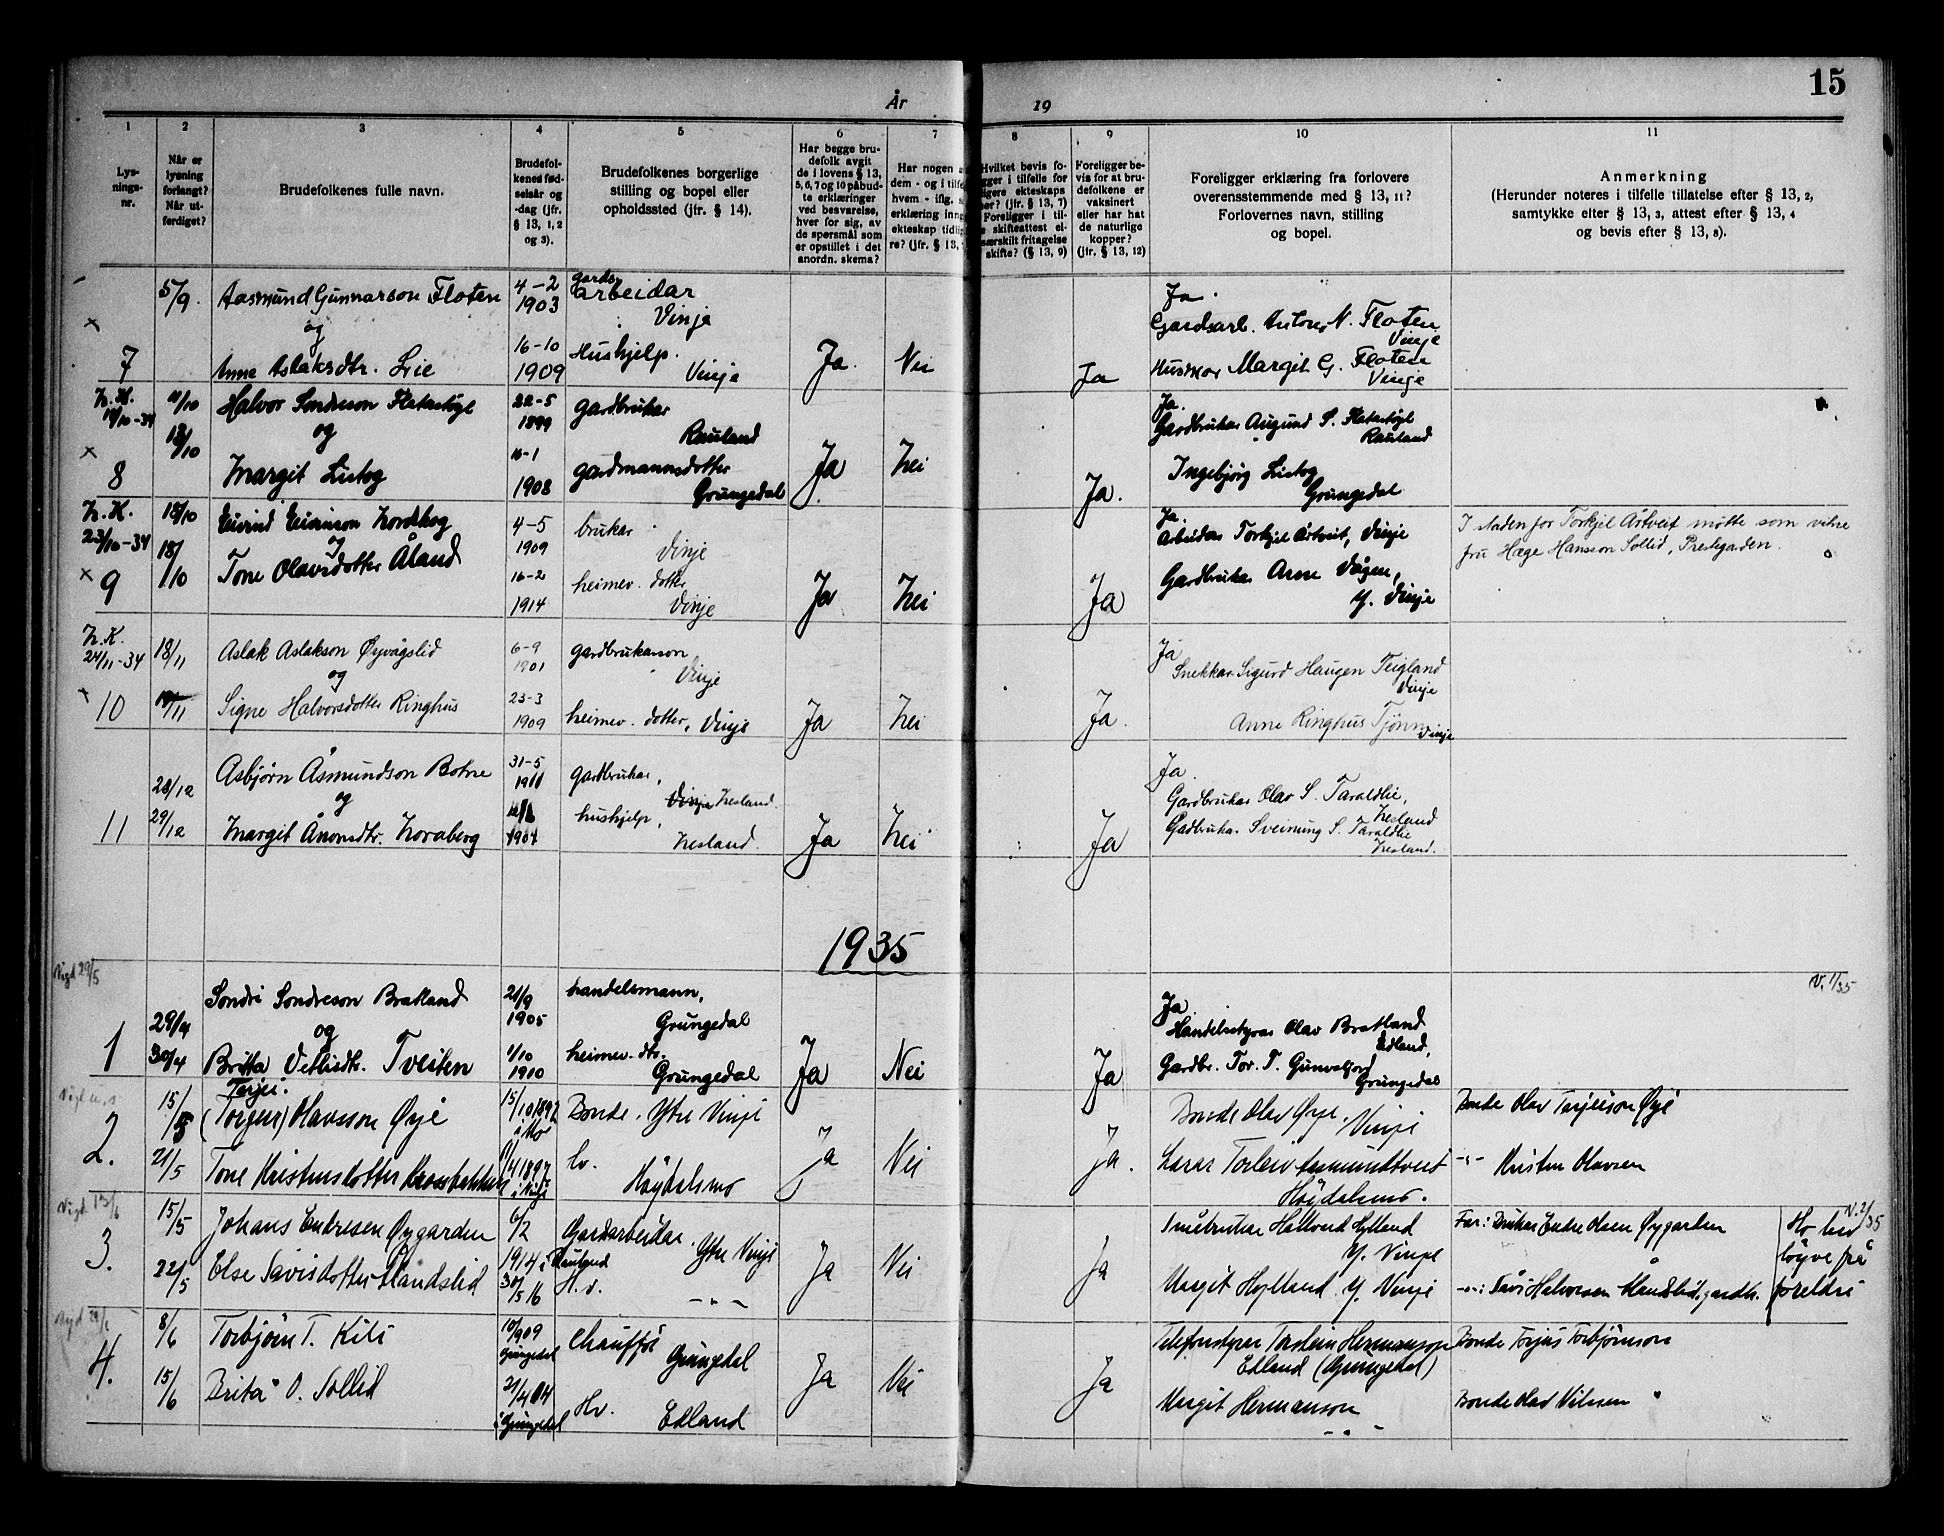 15
År 19
1 2 3 4 5 6 7 8 9 10 11
Lysnings-nr.
Når er lysning forlangt? Når utferdiget?
Brudefolkenes fulle navn.
Brudefolkenes fødselsår og -dag (jfr. § 13, 1, 2 og 3).
Brudefolkenes borgerlige stilling og bopel eller opholdssted (jfr. § 14).
Har begge brudefolk avgit de i lovens § 13, 5, 6, 7 og 10 påbudte erklæringer ved besvarelse, hver for sig, av de spørsmål som er opstillet i det anordn. skema?
Har nogen a
dem - og i tilfe
hvem - iflg. s
erklæring inng
ekteskap tidlig
re? (jfr. § 13,
Hvilket bevis fo-
gger i tilfelle for
igere ekteskaps
her? (jfr. § 13, 7)
Foreligger i til-
skifteattest el-
særskilt fritagelse
skifte? (§ 13, 9)
Foreligger bevis for at brudefolkene er vaksinert eller har hat de naturlige kopper? (jfr. § 13, 12)
Foreligger erklæring fra forlovere overensstemmende med § 13, 11? Forlovernes navn, stilling og bopel.
Anmerkning
(Herunder noteres i tilfelle tillatelse efter § 13, 2,
samtykke efter § 13, 3, attest efter § 13, 4
og bevis efter § 13, 8).
5/9. Aasmund Gunnarson Floten 4-2 1903 gardsarbeidar Vinje Ja.
og Gardsarb. N. Floten Vinje
x 7 Anne Aslaksdtr. Lie 16-10 1909 Hushjelp. Vinje Ja. Nei Ja Husmor Margit G. Floten Vinje
N.K. 11/10 Halvor Sondreson Flatastøyl 22-5 1899 gardbrukar Rauland Ja. Gardbrukar Augund S. Flatastøyl Rauland
og
x 8 Margit Listog 16-1 1908 gardmannsdotter Grungedal Ja Nei Ja. Ingebjørg Listog Grungedal
N.K. 23/10-34 18/10 Eivind Eivinson Nordskog 4-5 1909 brukar Vinje Ja. Arbeidar Torkjel Årtveit, Vinje I staden for Torkjel Årtveit møtte som vitne
og fru Hæge Hansson Sollid, Prestgarden.
x 9 18/10 Tone Olavsdotter Åland 16-2 1914 heimev. dotter Vinje Ja Nei Ja Gardbrukar Arne Vågen, y. Vinje
N.K. 24/11-34 18/11 Aslak Aslakson Øyvågslid 6-9 1901 gardbrukarson Vinje Ja Snekkar Sigurd Haugen Teigland Vinje
og
10 Signe Halvorsdotter Ringhus 23-3 1909 heimev. dotter, Vinje Ja Nei Ja. Anne Ringhus Tjønn Vinje
28/12 Asbjørn Åsmundson Botne 31-5 1911 gardbrukar, Vinje Nesland. Ja. Gardbrukar Olav S. Taraldlie, Nesland
og
11 29/12 Margit Ånonsdtr. Noraberg 1904 hushjelp, Nesland. Ja Nei Ja Gadbrukar Sveinung S. Taraldlie Nesland.
1935
Vigd 29/5 V. 1/35
29/4 Sondri Sondreson Bratland 21/9 1905 handelsmann, Grungedal Ja. Handelsstyrar Olav Bratland Edland,
og
1 30/4 Britta Vetlisdtr. Tveiten 1/10 1910 heimev. dtr. Grungedal Ja Nei Ja Gardbr. Tor. T. Gunvaljord Grungedal
15/5 Terjei. (Torgeir) Olavsson Øyi 15/10 1892 i Mo Bonde. Ytre Vinje Bonde Olav Øyi. Vinje Bonde Olav Terjeison Øyi
2. 21/5 Tone Kristensdotter Krossbekken 1897 i Vinje hv. Høydalsmo Ja Nei Ja. Lærar Torleiv Aasmundtveit Høydalsmo. -"- Kristen Olavsen
Vigd 13/6 15/5 Johans Endresen Øygarden 6/2 1914 i Rauland Gardarbeidar. Ytre Vinje Småbrukar Hallvard Hylland Y. Vinje Far: Brukar Endre Olsen Øygarden V. 2/35
3. 22/5 Else Tavisdotter Mandslid 30/5 16 H.v. -"- Ja Nei Ja Margit Hylland Y. Vinje -"-: Tåvi Halvorsen Mandslid, gardbr. Ho her løyve frå foreldri
8/6 Torbjørn T. Kili 10/9 09 Grungedal Chaufför Grungedal Telefonstyrer Torstein Hermanson Edland (Grungedal) Bonde Torjus Torbjørnson
4. 15/6 Brita O. Sollid 21/4 04 i Grungedal Hv. Edland Ja Nei Ja Margit Hermanson -"- Bonde Olav Nilssen